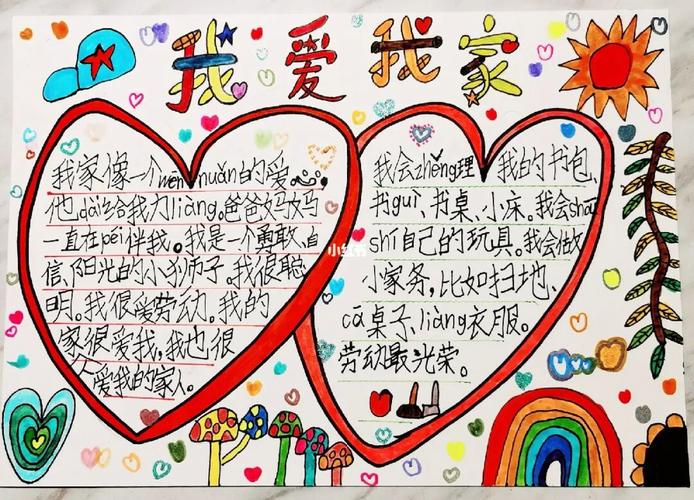 我爱我家
我家像一个wēn nuǎn的爱
他dài给我力liàng。爸爸妈妈
一直在péi伴我。我是一个勇敢、自
信、阳光的小狮子。我很聪
明。我很爱劳动。我的
家很爱我，我也很
爱我的家人。
我会zhěng理 我的书包、
书guì、书桌、小床。我会shōu
shí自己的玩具。我会做
小家务，比如扫地、
cā桌子、liàng衣服。
劳动最光荣。
小红书